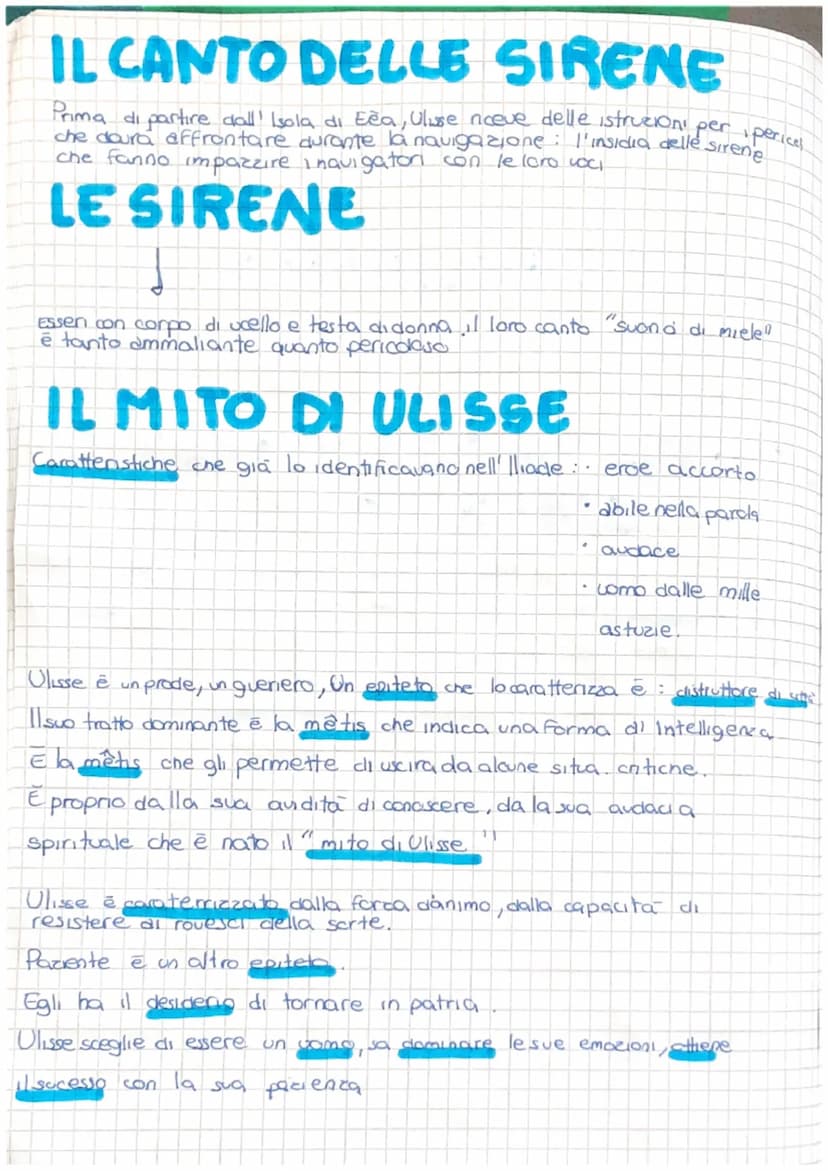 IL CANTO DELLE SIRENE
Prima di partire dall' Isola di Eèa, Ulisse riceve delle istruzioni per i pericoli
che dovrà affrontare durante la navigazione : l'insidia delle sirene
che fanno impazzire i navigatori con le loro voci
LE SIRENE
Esseri con corpo di ucello e testa di donna, il loro canto "suono di miele"
è tanto ammaliante quanto pericoloso
IL MITO DI ULISSE
Caratteristiche che già lo identificavano nell' Iliade : · eroe accorto
· abile nella parola
· audace
· uomo dalle mille
astuzie.
Ulisse è un prode, un gueriero, Un epiteto che lo caratterizza è : distruttore di città
Il suo tratto dominante è la mêtis che indica una forma di Intelligenza
È la mêtis che gli permette di uscira da alcune situa. critiche.
È proprio dalla sua avidità di conoscere, da la sua audacia
spirituale che è nato il "mito di Ulisse"
Ulisse è caraterrizzato dalla forza d'animo, dalla capacità di
resistere ai rovesci della sorte.
Paziente è un altro epiteto.
Egli ha il desiderio di tornare in patria.
Ulisse sceglie di essere un uomo, sa dominare le sue emozioni, ottiene
il sucesso con la sua pazienza